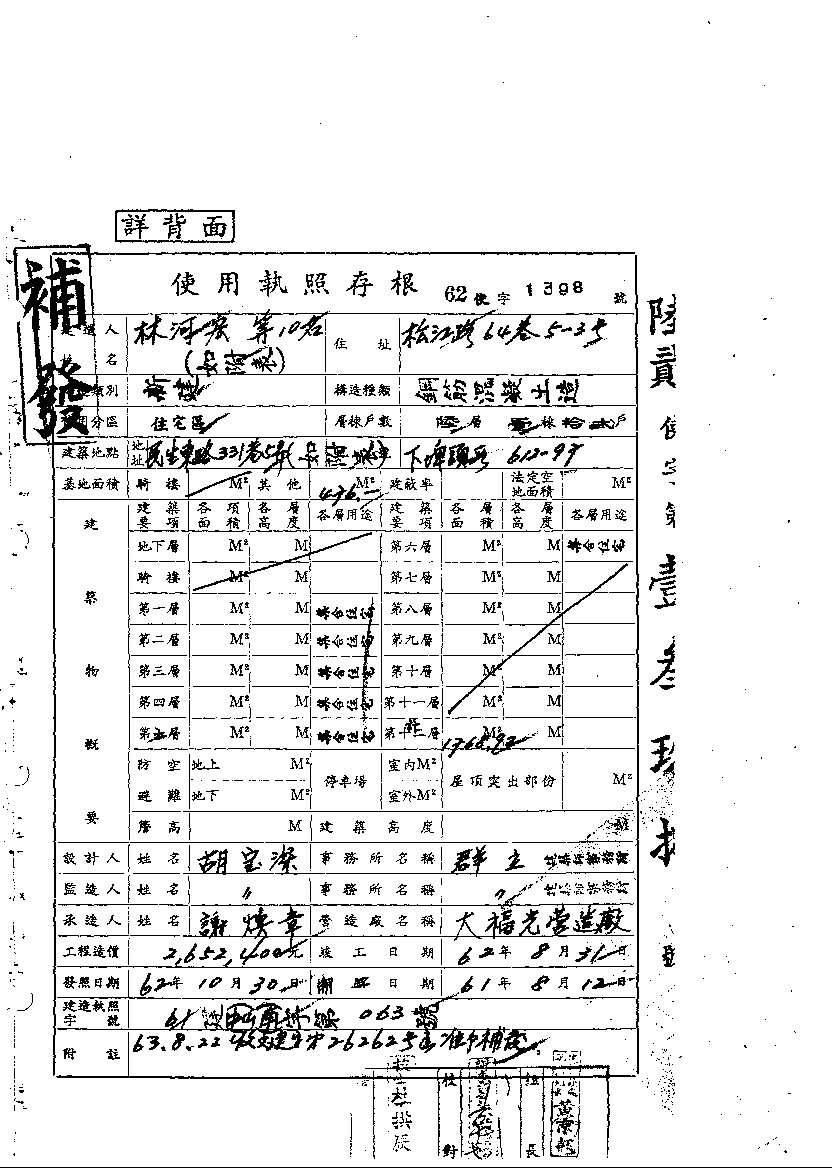 詳背面
補發
使用執照存根 62使字1398號
建造人姓名 林河宏等10名(如附表) 住址 松江路64巷5-3号
類別 新建 構造種類 鋼筋混凝土造
分區 住宅區 層棟戶數 陸層 壹棟 拾貳戶
建築地點 地址 民生東路331巷 下埤頭 612-97
基地面積 騎樓 M² 其他 436.- M² 建蔽率 法定空地面積 M²
建築物概要
建築要項 各項面積 各層高度 各層用途 建築要項 各層面積 各層高度 各層用途
地下層 M² M 第六層 M² M 集合住宅
騎樓 M² M 第七層 M² M
第一層 M² M 集合住宅 第八層 M² M
第二層 M² M 集合住宅 第九層 M² M
第三層 M² M 集合住宅 第十層 M² M
第四層 M² M 集合住宅 第十一層 M² M
第五層 M² M 集合住宅 第十二層 M² M
共 1768.92
防空避難 地上 M² 地下 M² 停車場 室內M² 室外M² 屋頂突出部份 M²
簷高 M 建築高度 M
設計人 姓名 胡宝潔 事務所名稱 群立
監造人 姓名 〃 事務所名稱 〃
承造人 姓名 謝煥章 營造廠名稱 大福光營造廠
工程造價 2,652,400元 竣工日期 62年8月31日
發照日期 62年10月30日 開工日期 61年8月12日
建造執照字號 61 063號
附註 63.8.22 26262号 准予補發
校對
組長
陸貳使字第壹叁玖捌號